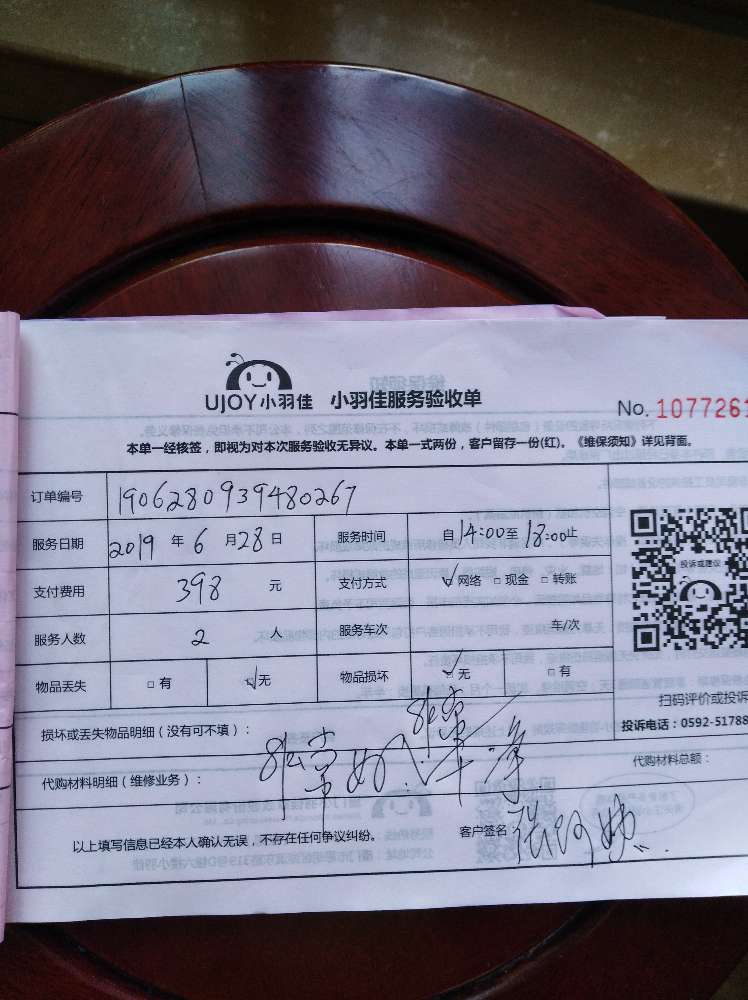 UJOY小羽佳 小羽佳服务验收单
No. 1077261
本单一经核签，即视为对本次服务验收无异议。本单一式两份，客户留存一份(红)。《维保须知》详见背面。
订单编号 1906280939480267
服务日期 2019 年 6 月 28 日 服务时间 自 14:00 至 18:00 止
支付费用 398 元 支付方式 ☑网络 □现金 □转账
服务人数 2 人 服务车次 车/次
物品丢失 □有 ☑无 物品损坏 ☑无 □有
投诉或建议
扫码评价或投诉
投诉电话：0592-51788
损坏或丢失物品明细（没有可不填）：
代购材料明细（维修业务）： 代购材料总额：
以上填写信息已经本人确认无误，不存在任何争议纠纷。 客户签名